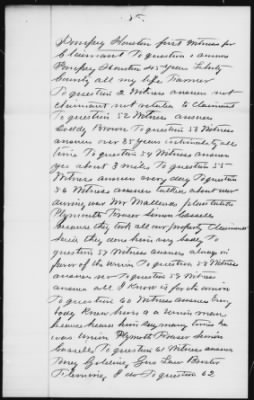 Pompey Houston first Witness for
Claimant To question 1 answers
Pompey Houston 45 years Liberty
County all my life Farmer
To question 2 Witness answers not
claimant not related to claimant
To question 52 Witness answers
Brown To question 53 Witness
answers over 25 years intimately all
time To question 54 Witness answers
yes about 3 miles To question 55
Witness answers every day To question
56 Witness answers talked about war
during war Mr place
Plymouth Frasier Simon Cassell
because they took all our property Claimant
said they done him very badly To
question 57 Witness answers always in
favor of the Union To question 58 Witness
answers no To question 59 Witness
answers all I know is for the Union
To question 60 Witness answers Every
body knew he was a Union man
because heard him say many times he
was Union Plymouth Frasier Simon
Cassell To question 61 Witness answers
Golding Law
Fleming I do To question 62